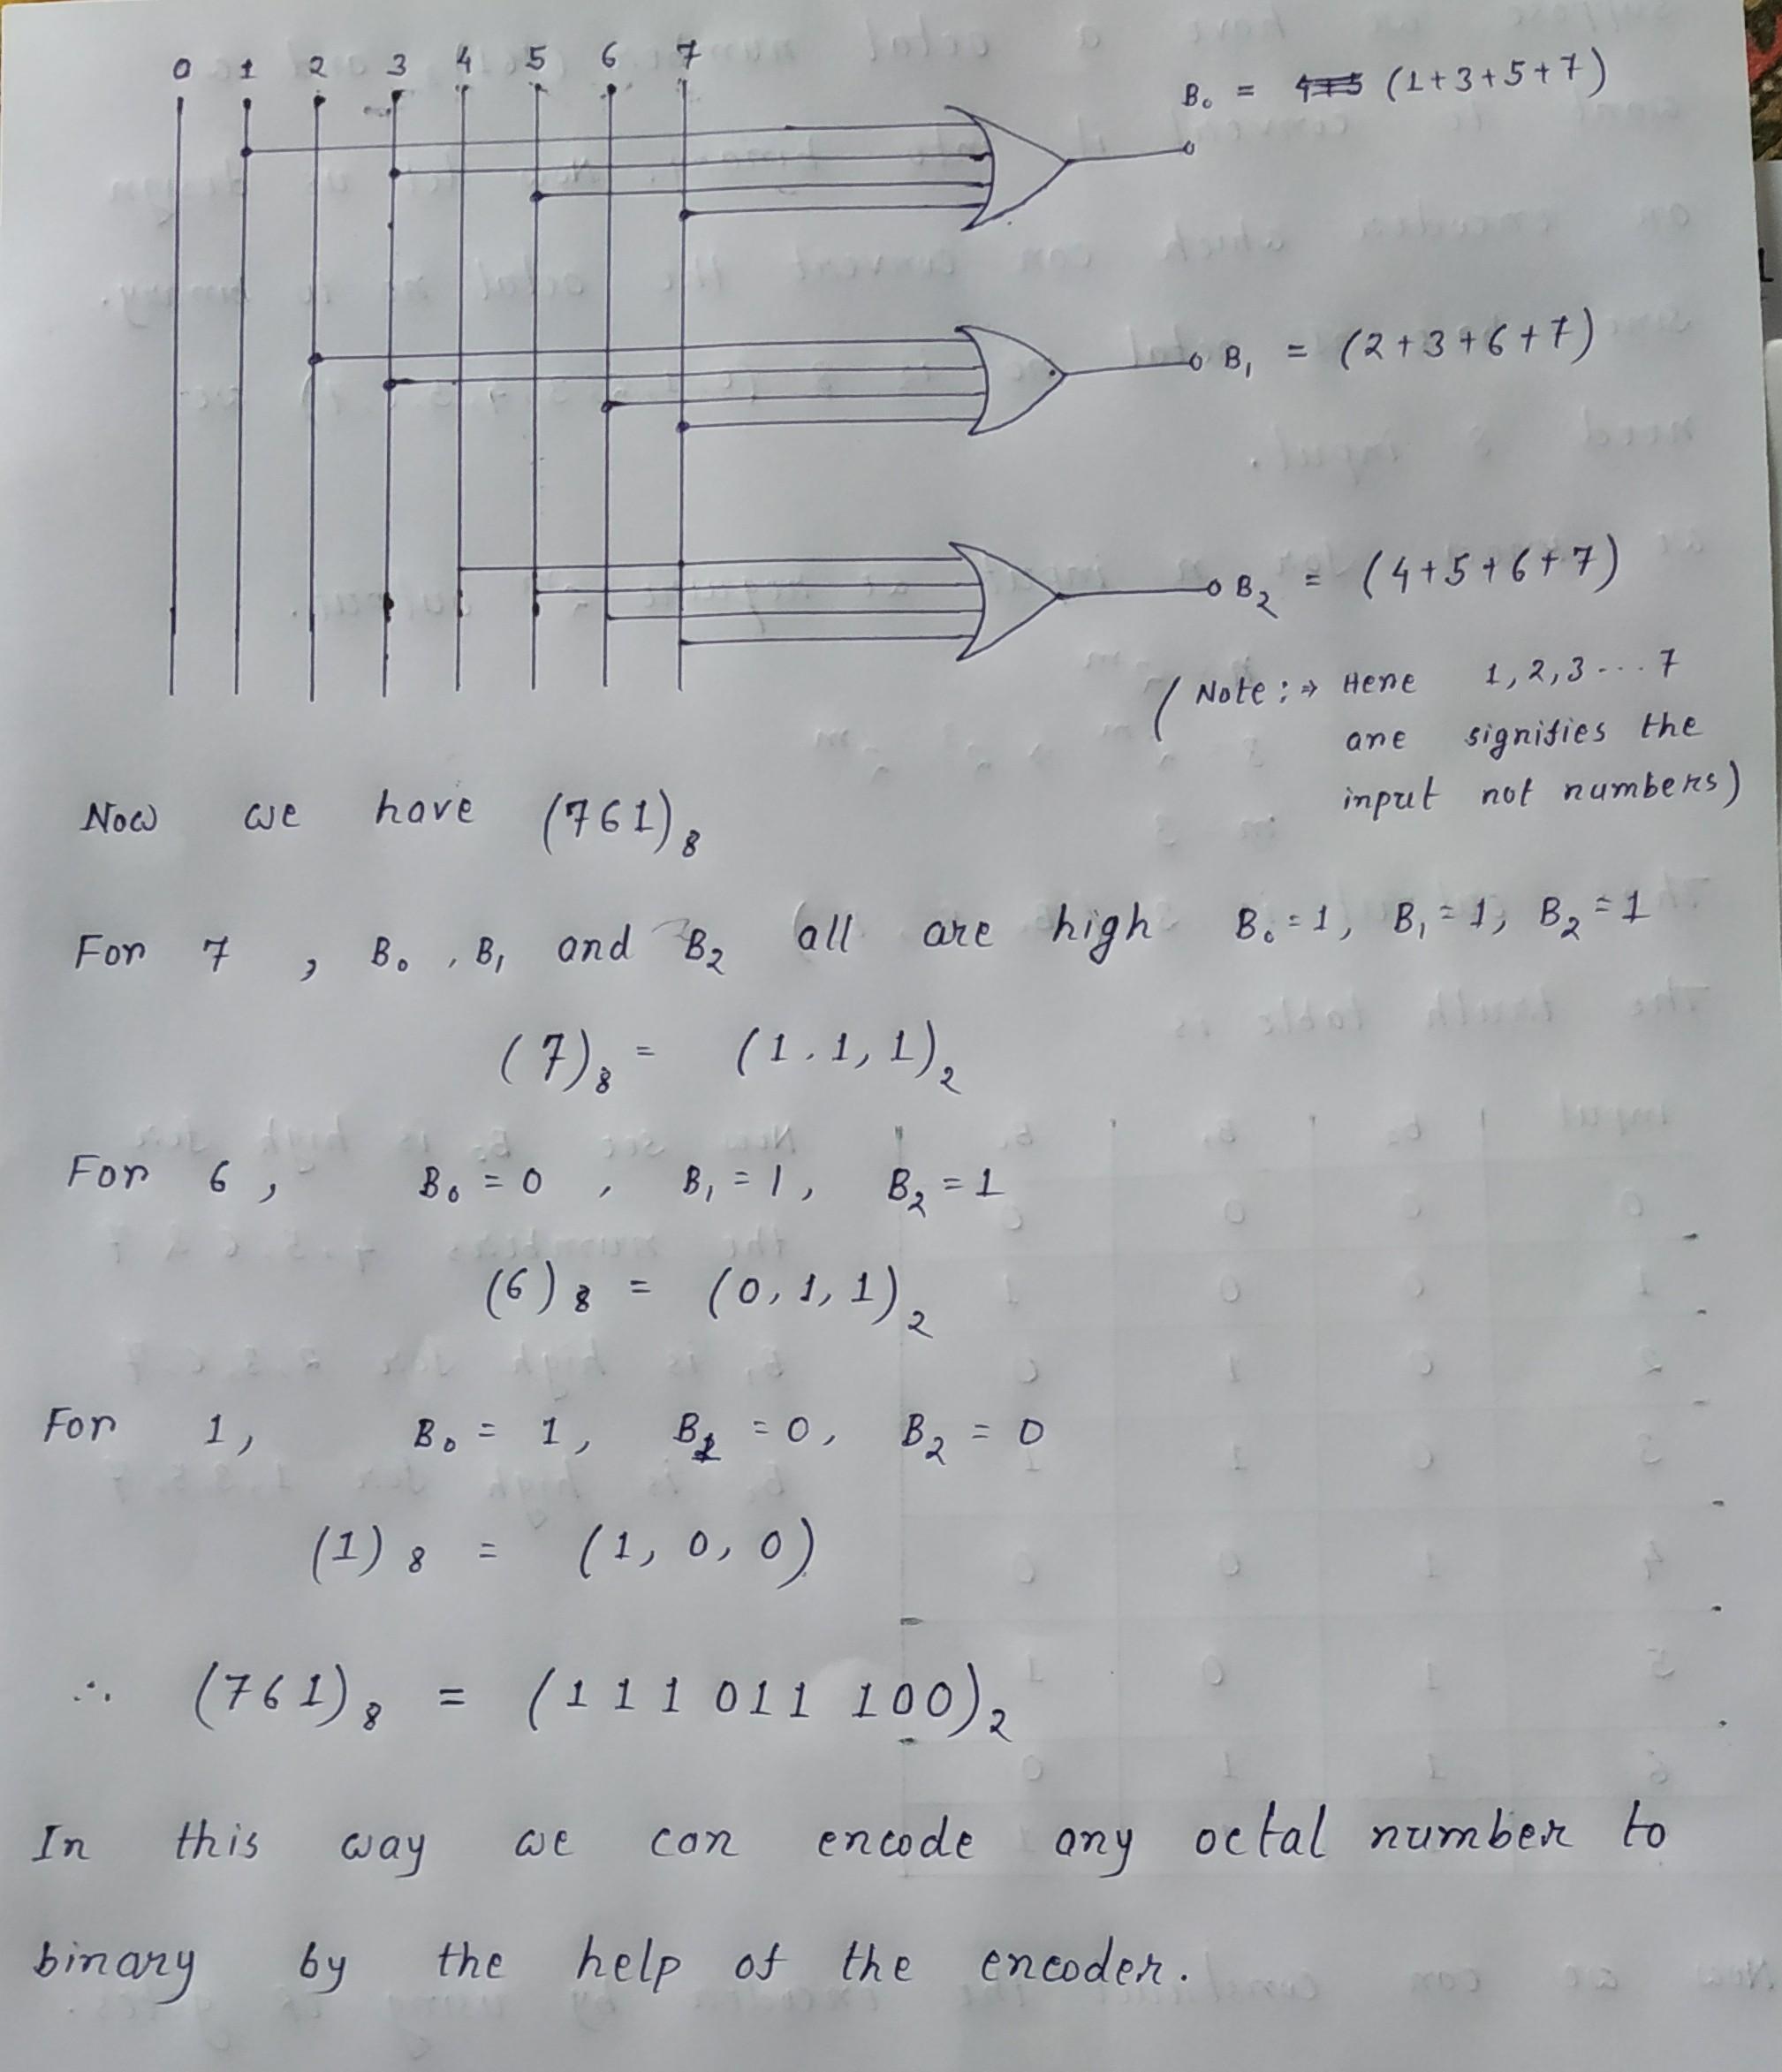 0 1 2 3 4 5 6 7
B₀ = 4+5 (1+3+5+7)
B₁ = (2+3+6+7)
B₂ = (4+5+6+7)
(Note :⇒ Here 1,2,3...7
are signifies the
input not numbers)
Now we have (761)₈
For 7 , B₀ , B₁ and B₂ all are high B₀=1, B₁=1, B₂=1
(7)₈ = (1.1,1)₂
For 6 , B₀ = 0 , B₁ = 1 , B₂ = 1
(6)₈ = (0,1,1)₂
For 1, B₀ = 1, B₁ = 0, B₂ = 0
(1)₈ = (1, 0, 0)
∴ (761)₈ = (111 011 100)₂
In this way we can encode any octal number to
binary by the help of the encoder.